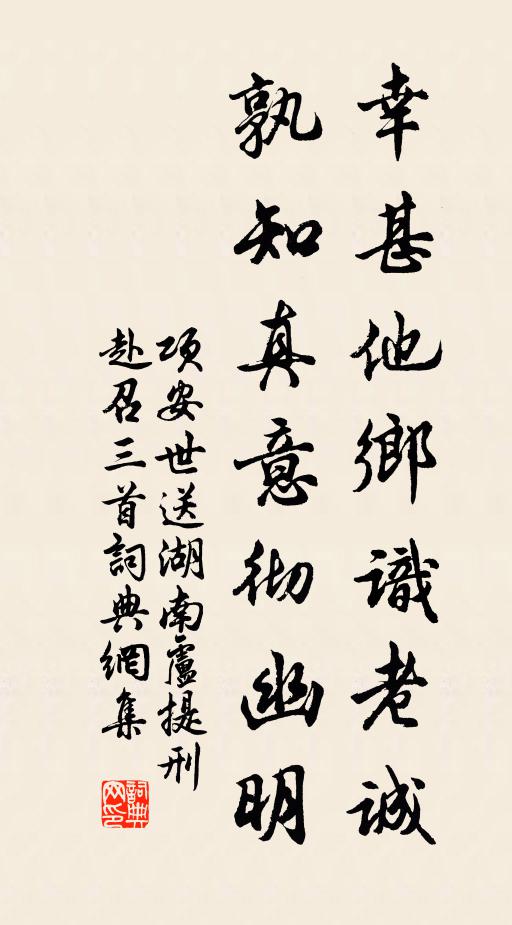 幸甚他鄉識老誠
孰知真意彻幽明
項安世送湖南盧提刑
赴召三首詞典網集
詞典
网印